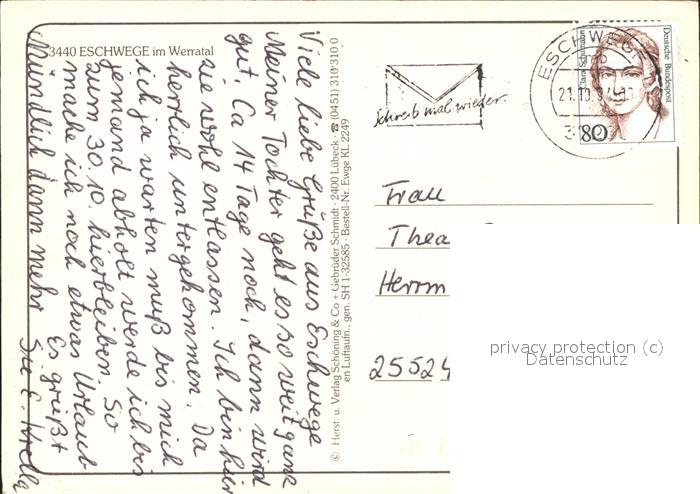 3440 ESCHWEGE im Werratal
Viele liebe Grüße aus Eschwege
Meiner Tochter geht es so weit ganz
gut. Ca 14 Tage noch, dann wird
sie wohl entlassen. Ich bin hier
herrlich untergekommen. Da
ich ja warten muß bis mich
jemand abholt werde ich bis
zum 30.10. hierbleiben. So
mache ich noch etwas Urlaub
Mündlich dann mehr
Es grüßt
Sie E.
© Herst. u. Verlag Schöning & Co + Gebrüder Schmidt · 2400 Lübeck · ☎ (0451) 310 310 0
en Luftaufn., gen. SH 1-32585 · Bestell-Nr. Ewge KL 2249
Schreib mal wieder.
ESCHWEGE
Deutsche Bundespost
80
Frau
Thea
Herrm
25524
privacy protection (c)
Datenschutz